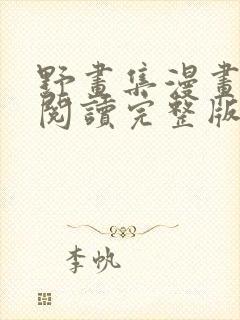 野畫集漫畫
閱讀完整版
李帆